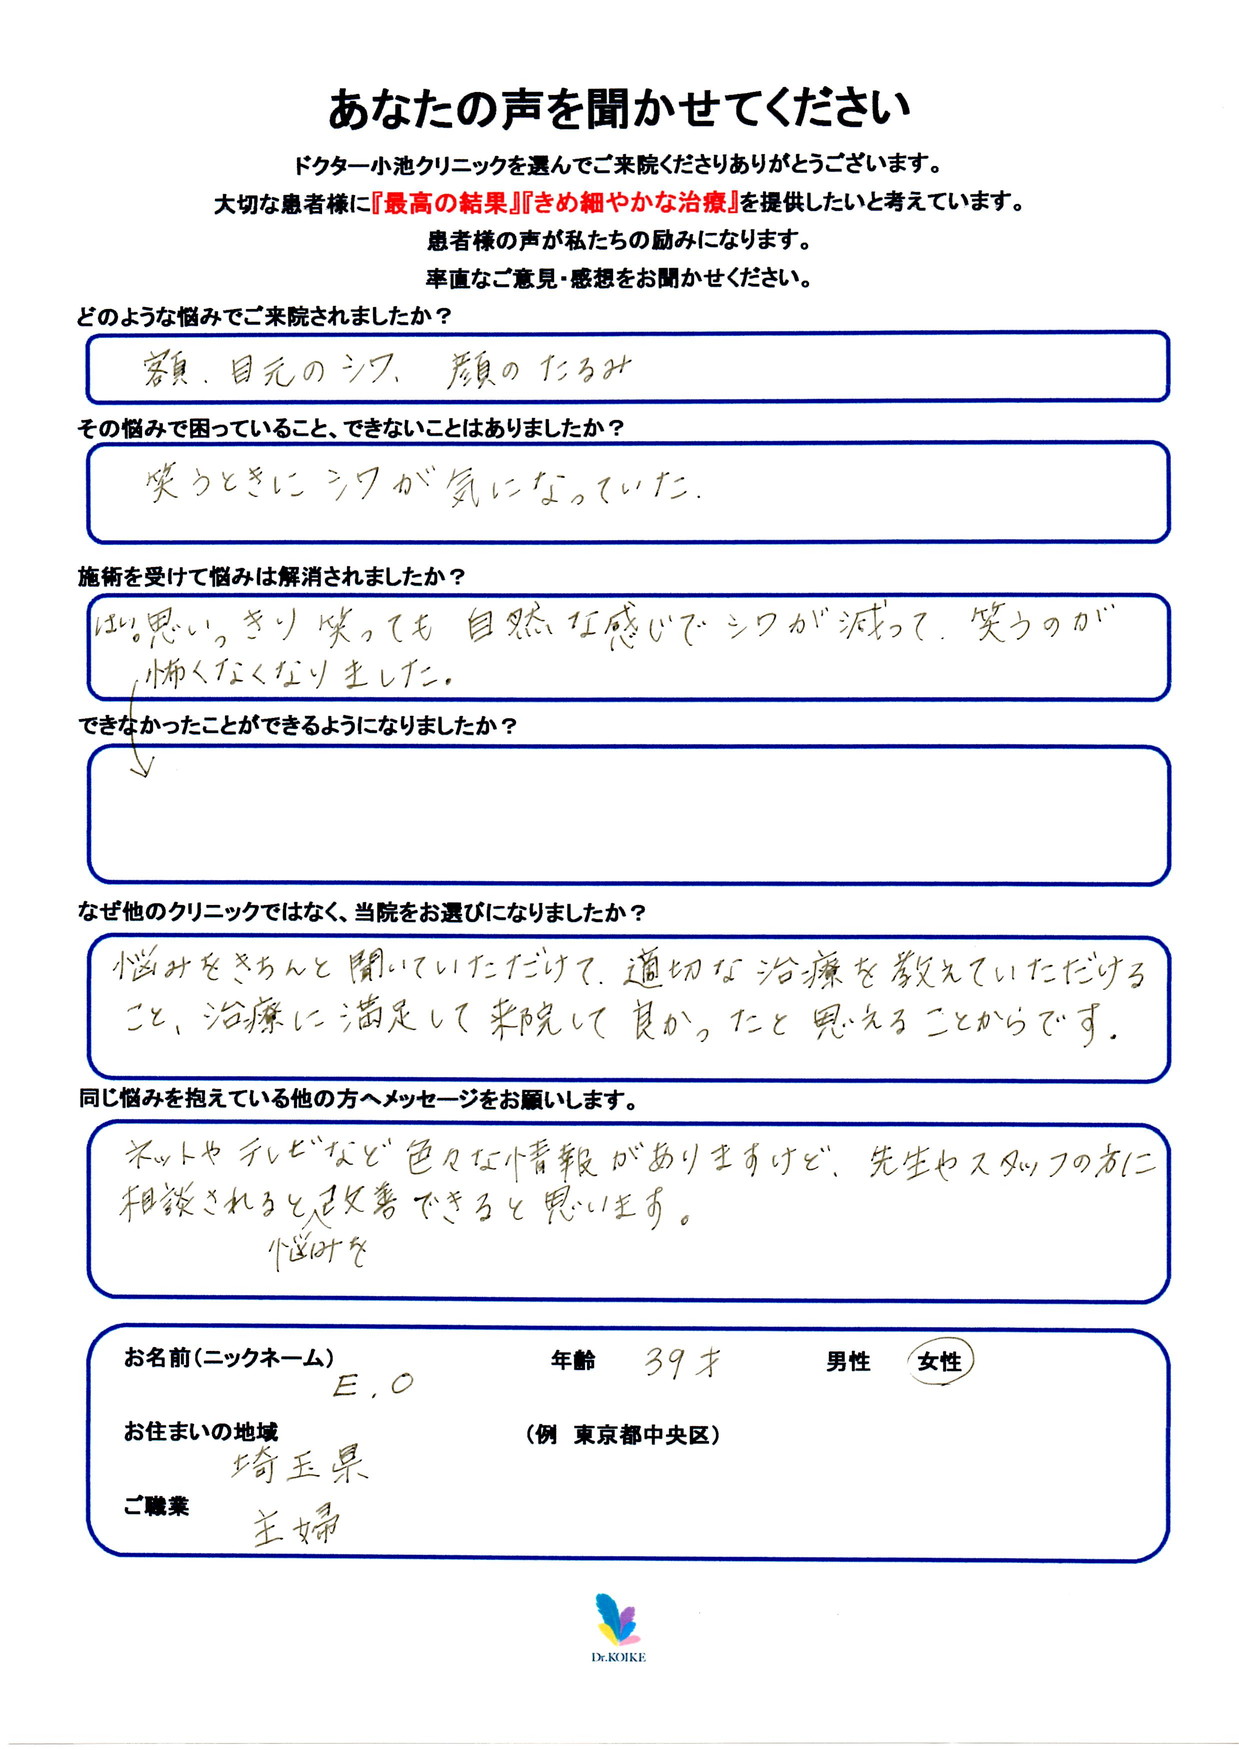 あなたの声を聞かせてください
ドクター小池クリニックを選んでご来院くださりありがとうございます。
大切な患者様に『最高の結果』『きめ細やかな治療』を提供したいと考えています。
患者様の声が私たちの励みになります。
率直なご意見・感想をお聞かせください。
どのような悩みでご来院されましたか？
額、目元のシワ、顔のたるみ
その悩みで困っていること、できないことはありましたか？
笑うときにシワが気になっていた.
施術を受けて悩みは解消されましたか？
はい。思いっきり笑っても自然な感じでシワが減って、笑うのが
怖くなくなりました。
できなかったことができるようになりましたか？
なぜ他のクリニックではなく、当院をお選びになりましたか？
悩みをきちんと聞いていただけて、適切な治療を教えていただける
こと、治療に満足して来院して良かったと思えることからです.
同じ悩みを抱えている他の方へメッセージをお願いします。
ネットやテレビなど色々な情報がありますけど、先生やスタッフの方に
相談されると改善できると思います。
悩みを
お名前（ニックネーム） E.O 年齢 39才 男性 女性
お住まいの地域 （例 東京都中央区）
埼玉県
ご職業
主婦
Dr.KOIKE